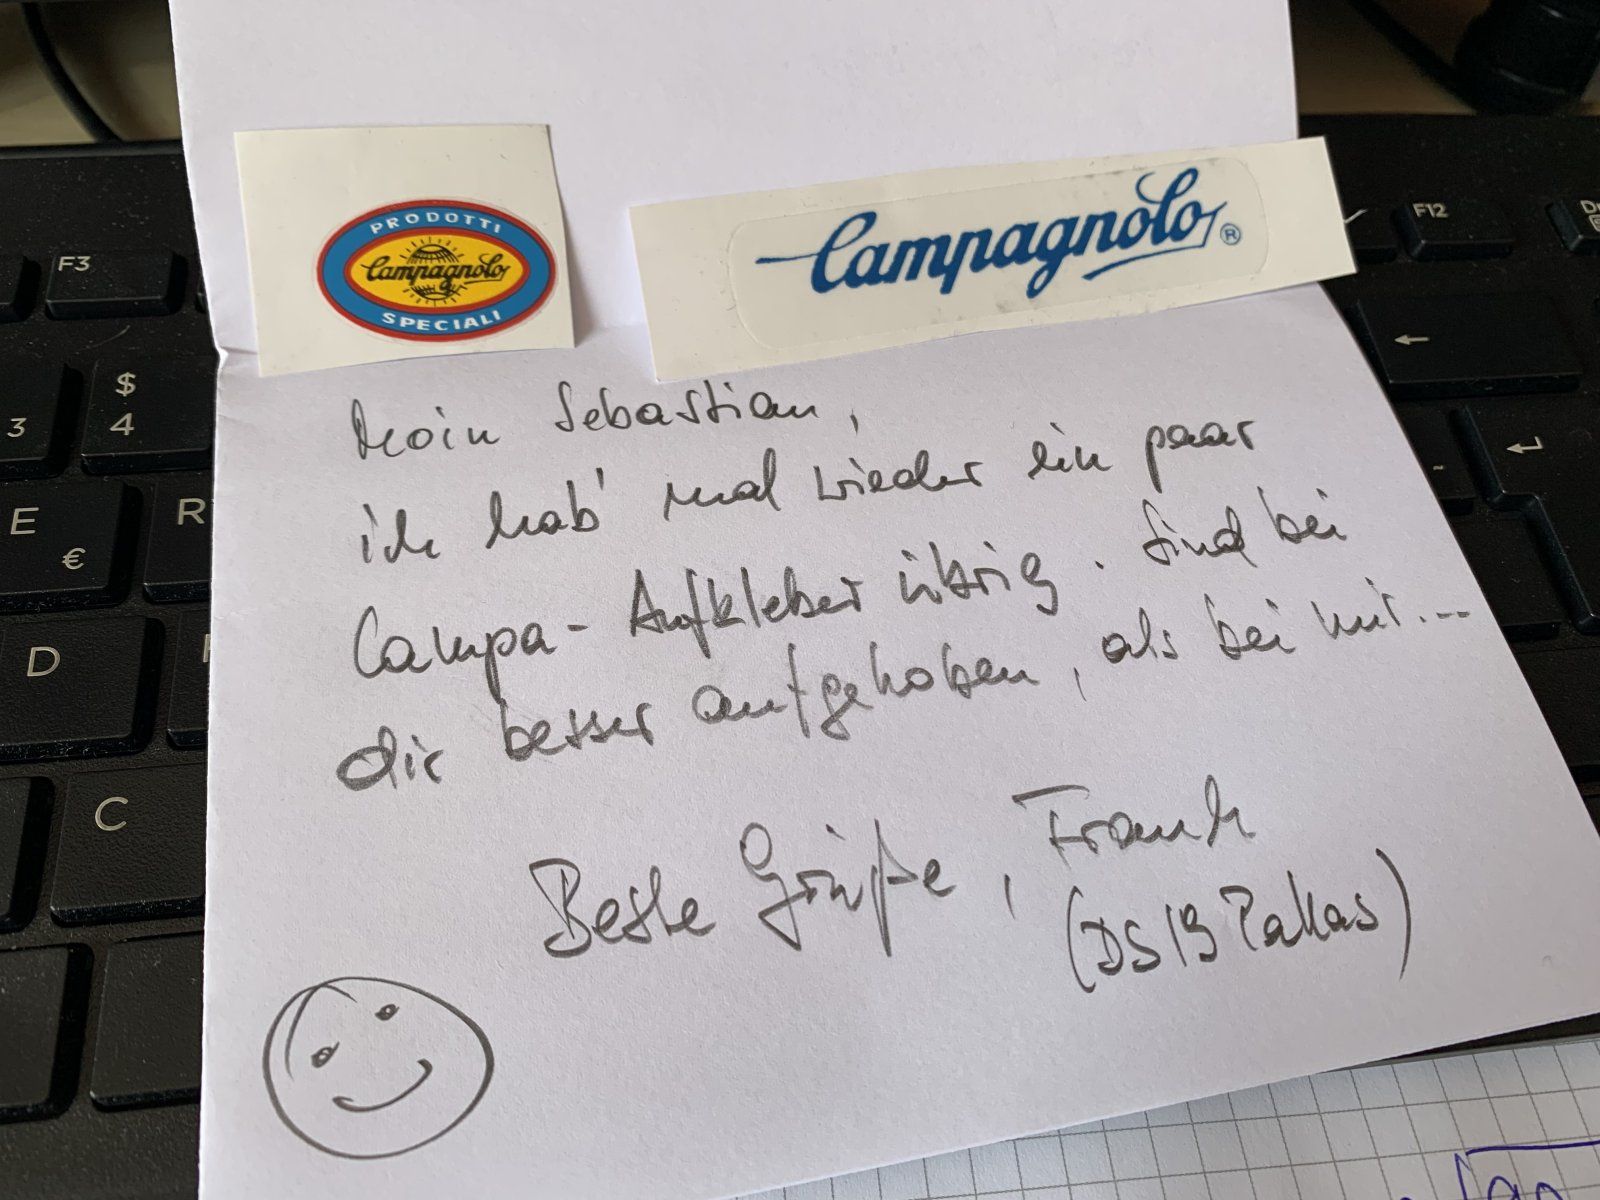 PRODOTTI
Campagnolo
SPECIALI
Campagnolo ®
Moin Sebastian,
ich hab' mal wieder ein paar
Campa-Aufkleber übrig. Sind bei
dir besser aufgehoben, als bei mir...
Beste Grüße, Frank
(DS19 Pallas)
F3
F12
$
3
4
E
€
R
D
C